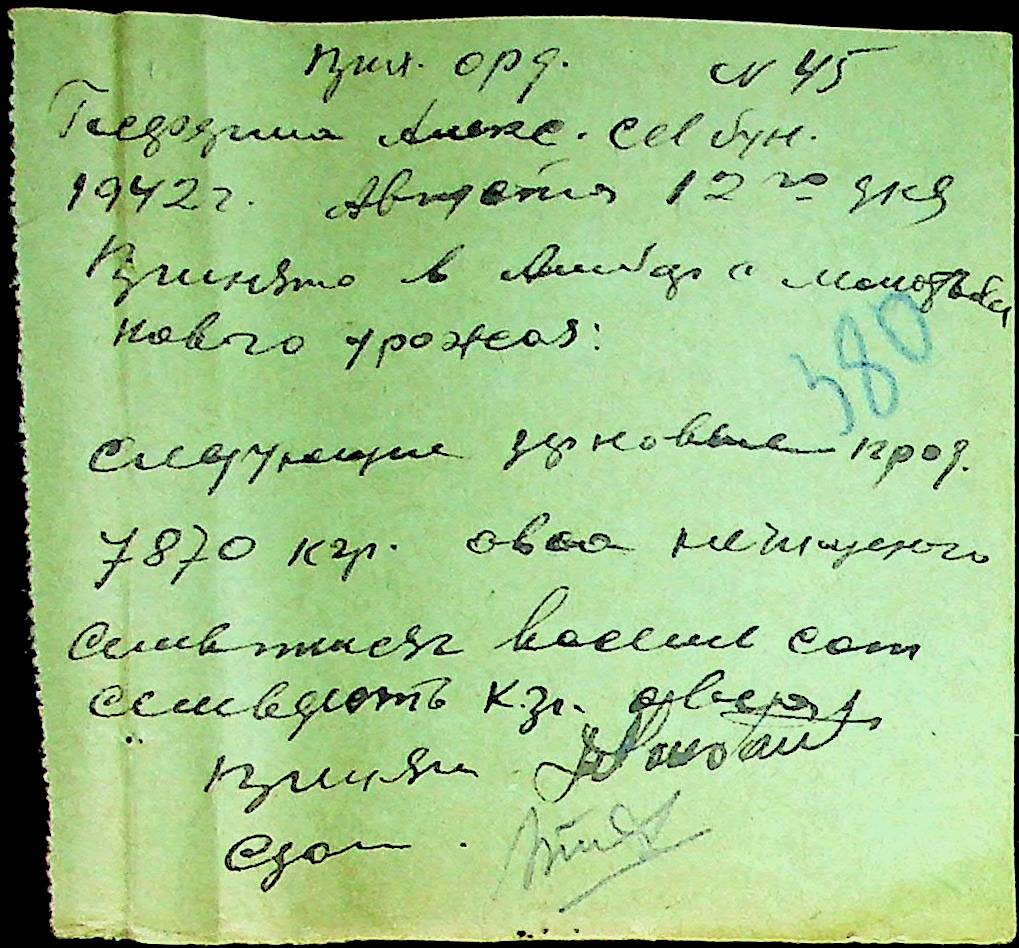 Прих. орд. N 45
Алекс.
1942 г. Августа 12 го дня
Принято в Амбар с молотьбы
нового урожая:
380
следующие зерновые прод.
7870 кгр. овса
семь тысяч восемь сот
семьдесять кгр. овса
принял
сдал